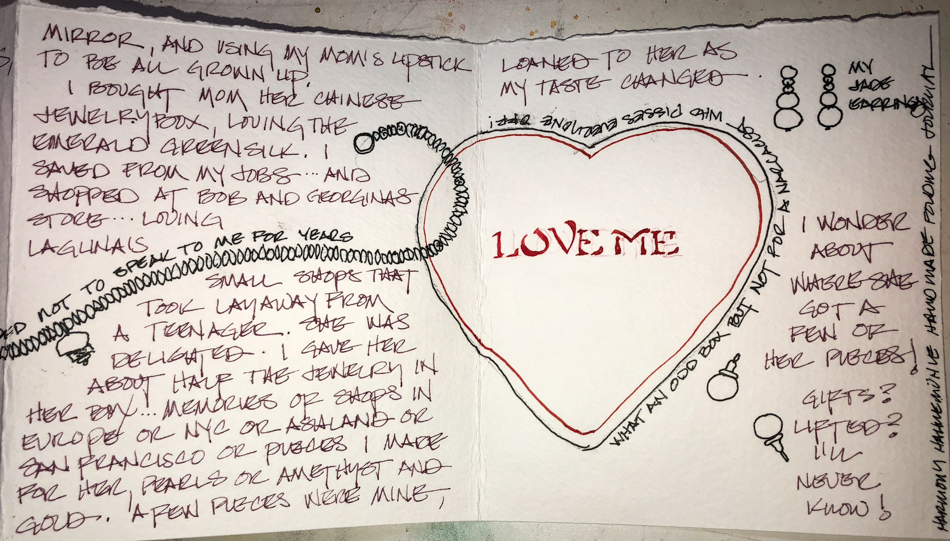 MIRROR, AND USING MY MOM'S LIPSTICK
TO BE ALL GROWN UP.
I BOUGHT MOM HER CHINESE
JEWELRY BOX, LOVING THE
EMERALD GREEN SILK. I
SAVED FROM MY JOBS... AND
SHOPPED AT BOB AND GEORGINAS
STORE... LOVING
LAGUNAS
SMALL SHOPS THAT
TOOK LAYAWAY FROM
A TEENAGER. SHE WAS
DELIGHTED. I GAVE HER
ABOUT HALF THE JEWELRY IN
HER BOX... MEMORIES OF SHOPS IN
EUROPE OR NYC OR ASHLAND OR
SAN FRANCISCO OR PIECES I MADE
FOR HER, PEARLS OR AMETHYST AND
GOLD. A FEW PIECES WERE MINE,
NOT TO SPEAK TO ME FOR YEARS
LOANED TO HER AS
MY TASTE CHANGED...
LOVE ME
WHAT AN ODD BOX BUT NOT FOR A NARCISSIST WHO PISSES EVERYONE OFF!
MY
JADE
EARRINGS
I WONDER
ABOUT
WHERE SHE
GOT A
FEW OF
HER PIECES!
GIFTS?
LIFTED?
I'LL
NEVER
KNOW!
HAND MADE